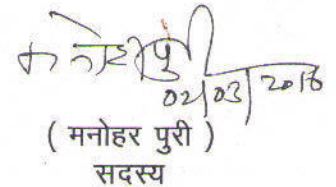 मनोहर पुरी
02/03/2016
( मनोहर पुरी )
सदस्य